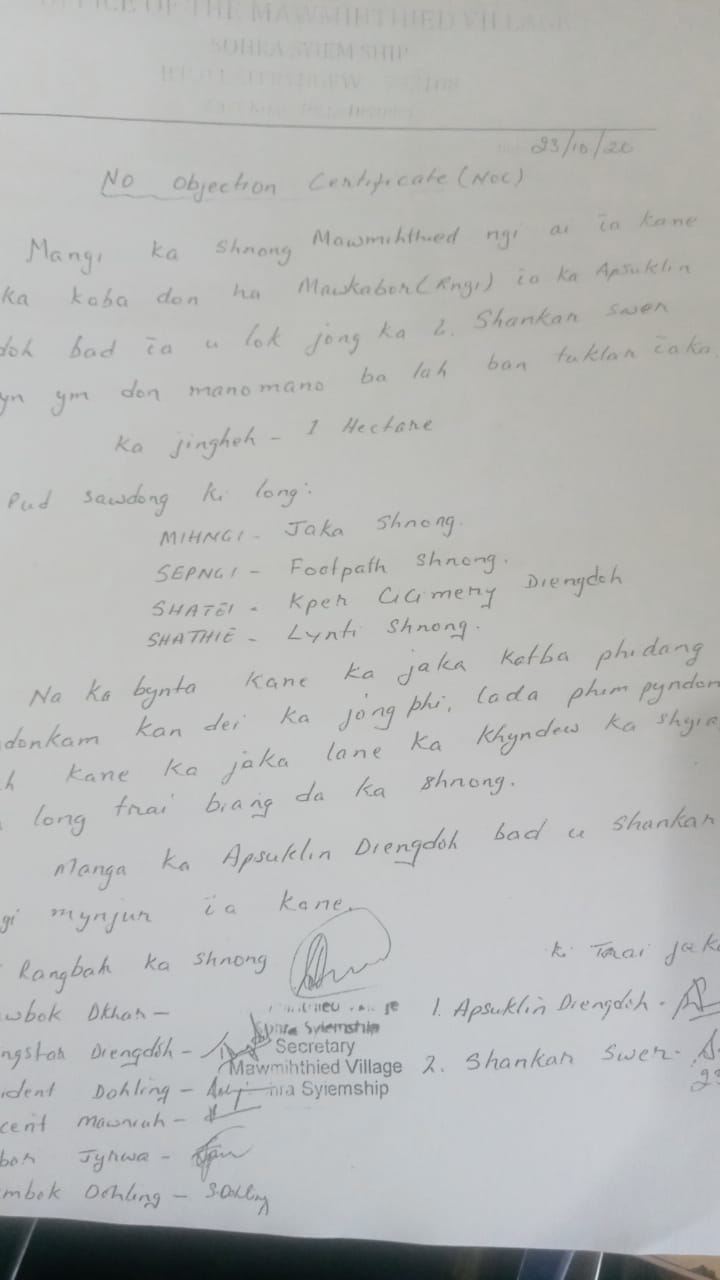 OFFICE OF THE MAWMIHTHIED VILLAGE
SOHRA SYIEM SHIP
23/10/20
No Objection Certificate (NOC)
Mangi ka Shnong Mawmihthied ngi ai ïa kane
ka kaba don ha Mawkabor (Rngi) ïa ka Apsuklin
doh bad ïa u lok jong ka 2. Shankar Swer
yn ym don manomano ba lah ban tuklar ïaka
Ka jingheh - 1 Hectare
Pud sawdong ki long:
MIHNGI - Jaka Shnong.
SEPNGI - Footpath Shnong.
SHATEI - Kper Diengdoh
SHATHIE - Lynti Shnong.
Na ka bynta kane ka jaka katba phidang
donkam kan dei ka jong phi, lada phim pyndon
h kane ka jaka lane ka Khyndew ka shyia
long trai biang da ka shnong.
Manga ka Apsuklin Diengdoh bad u Shankar
gi mynjur ïa kane.
Rangbah ka Shnong
ki Trai jaka
wbok Dkhar -
1. Apsuklin Diengdoh -
ngstar Diengdoh -
Sohra Syiemship
Secretary
Mawmihthied Village
2. Shankar Swer -
ident Dohling -
hra Syiemship
cent Mawriah -
bor Jyrwa -
mbok Dohling - S.Dohling